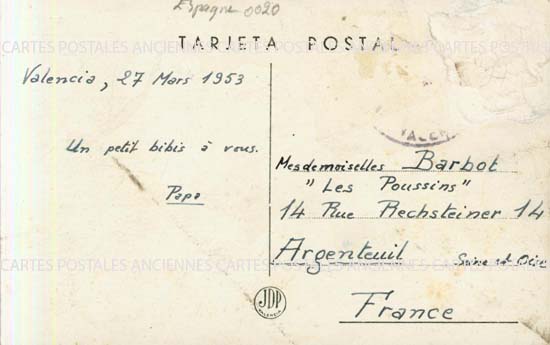 Espagne 0020
TARJETA POSTAL
CARTES POSTALES ANCIENNES CARTES POSTALES ANCIENNES CARTES POSTALES ANCIENNES
Valencia, 27 Mars 1953
Un petit bibis à vous.
Papa
VALEN
Mesdemoiselles Barbot
" Les Poussins "
14 Rue Rechsteiner 14
Argenteuil Seine et Oise
France
CARTES POSTALES ANCIENNES CARTES POSTALES ANCIENNES CARTES POSTALES ANCIENNES
JDP
VALENCIA